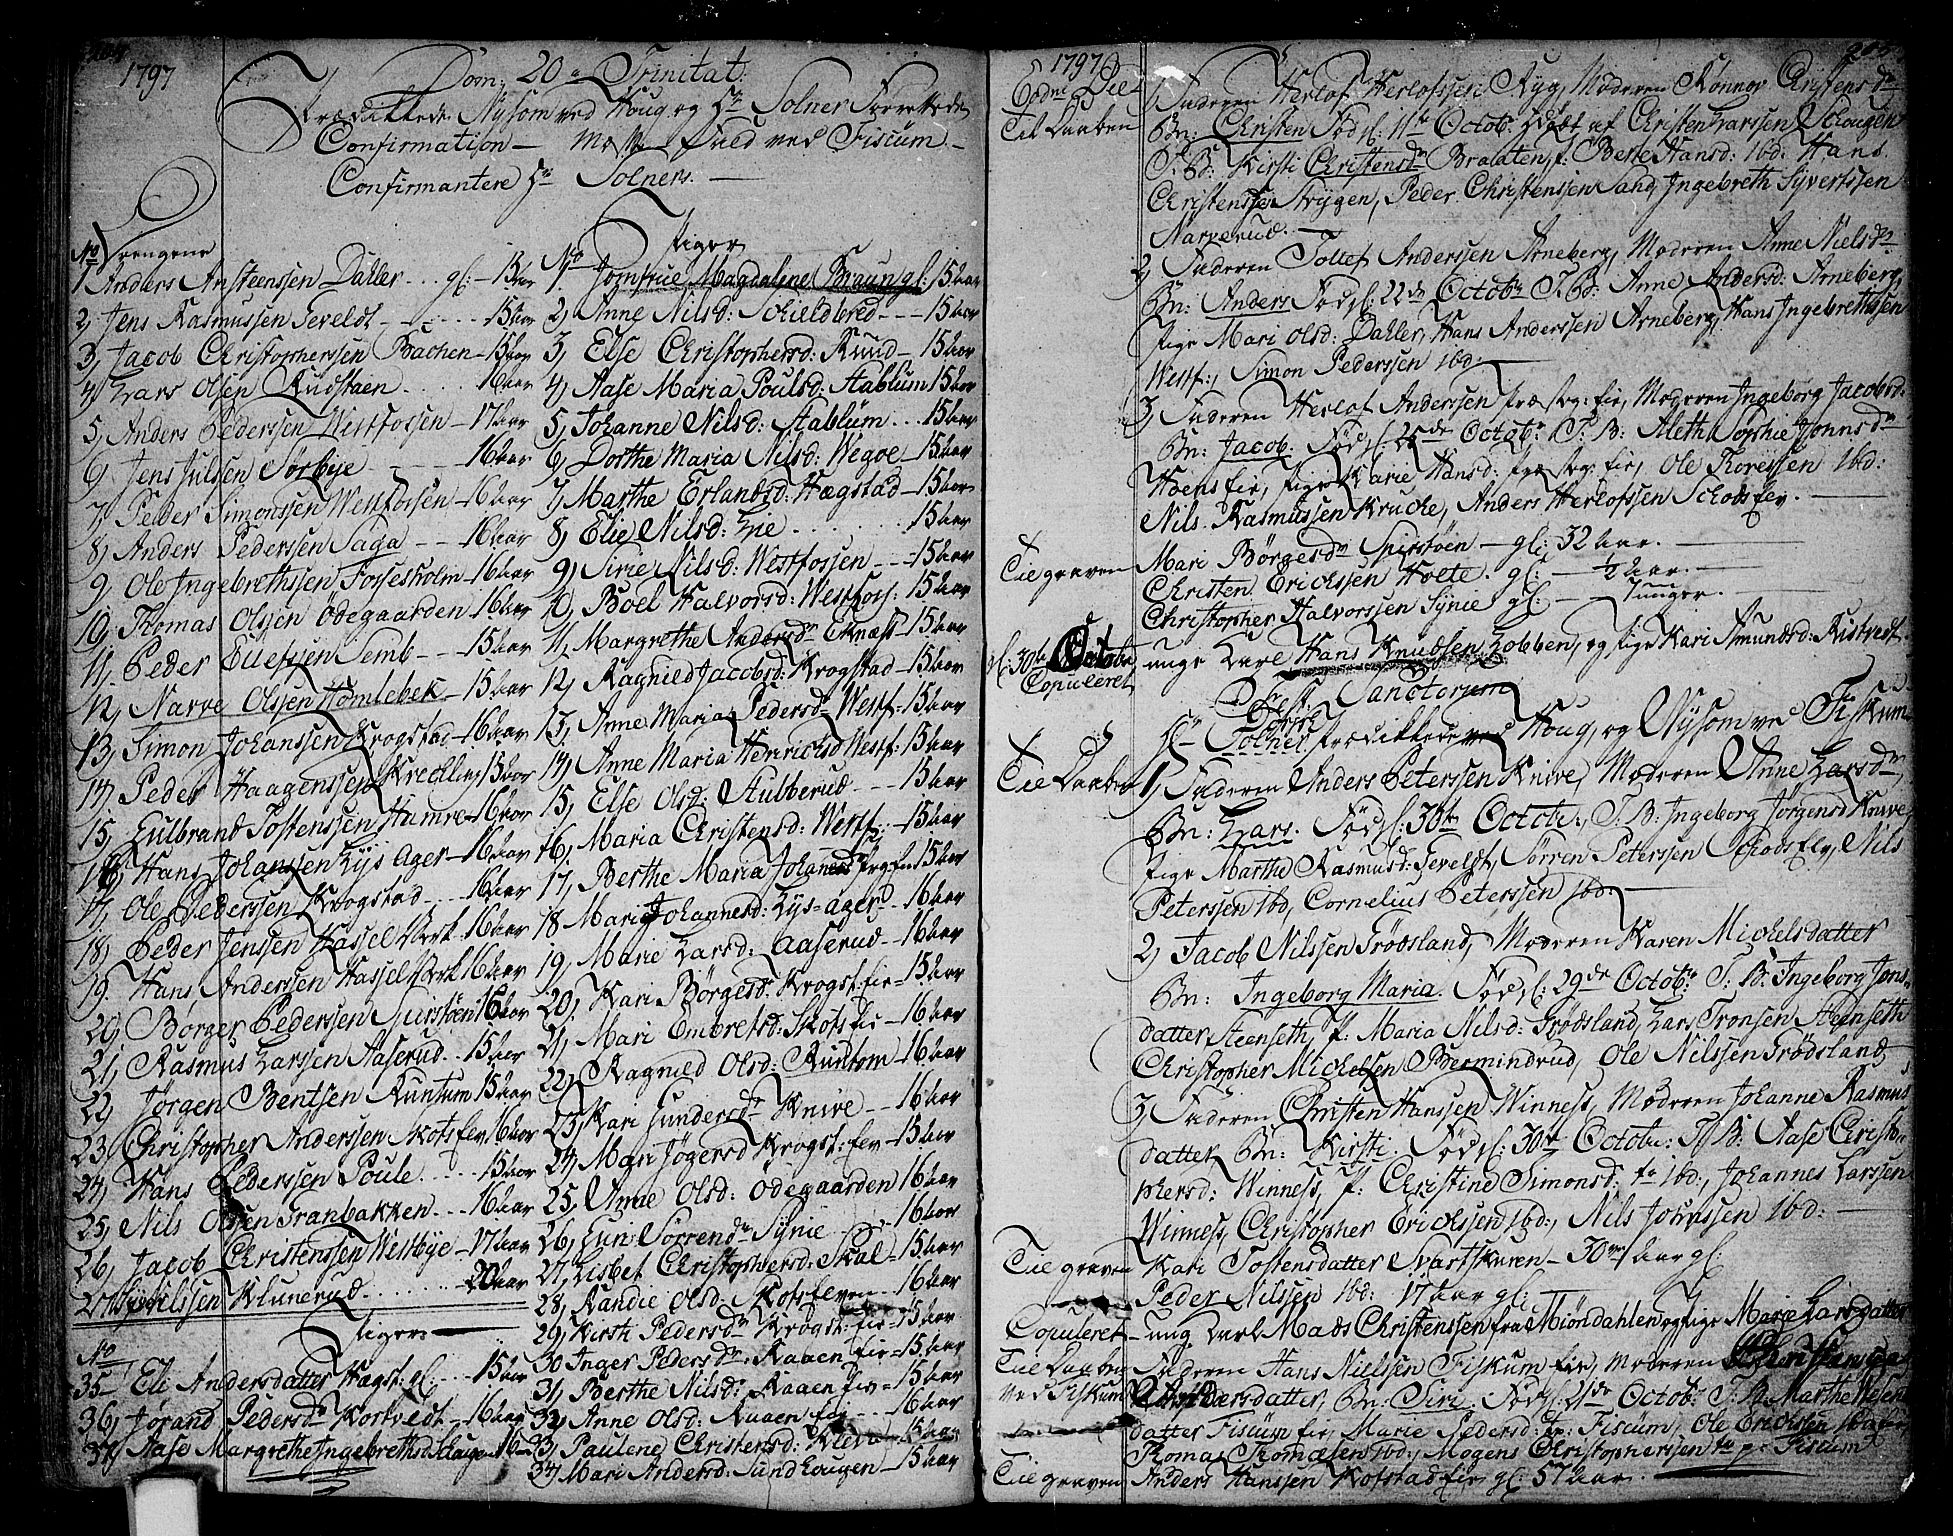 1797
Dom: 20 a Trinitat:
Prædikkede Nysom ved Houg og Hr Solner Forrettede
Confirmation — ved Fiscum —
Confirmantere Hr Solners. —
No Drengene
1 Anders Ansteenssen Dahler ... gl: — 15 aar
2, Jens Rasmussen Teveldt — 15 aar
3, Jacob Christopherssen Bachen — 15 aar
4, Lars Olsen Rudstaen .... 16 aar
5, Anders Pederssen Westfossen — 17 aar
6, Jens Julsen Sørbye — 16 aar
7, Peder Simonssen Westfossen — 16 aar
8, Anders Pederssen Saga — 16 aar
9, Ole Ingebrethssen Fossesholm 16 aar
10, Thomas Olssen Ödegaarden 16 aar
11, Peder Ellefssen Semb — 15 aar
12, Narve Olssen Homlebek — 15 aar
13, Simon Johanssen Krogstad — 16 aar
14, Peder Haagenssen Krechling 15 aar
15, Gulbrand Tostenssen Hamre — 16 aar
16, Hans Johanssen Lys Ager — 16 aar
17, Ole Pederssen Krogstad ... 16 aar
18, Peder Jenssen Hassel Verk 16 aar
19. Hans Anderssen Hassel Verk 16 aar
20, Børger Pederssen Spirstöen 16 aar
21, Rasmus Larssen Aaserud .. 15 aar
22, Jørgen Bentsen Runtum 15 aar
23, Christopher Anderssen Kotsfev 16 aar
24, Hans Pederssen Poule .... 15 aar
25, Nils Olssen Tranbakken ... 16 aar
26, Jacob Christenssen Westbye — 17 aar
27, Klunerud ....... 20 aar
Piger
No
35 Eli Andersdatter Hægst: gl. ... 15 aar
36, Jørand Pedersdr Kortvedt — 16 aar
37, Aase Margrethe Ingebrethsd: Haugen 16
Piger
No
1. Jomfrue Magdalene Braun gl: 15 aar
2, Anne Nilsd: Schieldbred — 15 aar
3, Else Christophersd: Ruud — 15 aar
4, Aase Maria Poulsd: Stablum 15 aar
5, Johanne Nilsd: Stablüm ... 15 aar
6, Dorthe Maria Nilsd: Wegoe 15 aar
7, Marthe Erlandsd: Hægstad — 15 aar
8, Elie Nilsd: Lie ....... 15 aar
9, Sirie Nilsd: Westfossen — 15 aar
10, Boel Halvorsd: Westfoss: 15 aar
11, Margrethe Andersdr Eknæss 15 aar
12, Ragnied Jacobsd: Krogstad — 15 aar
13, Anne Maria Pedersdr Westf: 15 aar
14, Anne Maria Henrichsd Westf: 15 aar
15, Else Olsd: Stubberud ... 15 aar
16, Maria Christensd: Westf: 15 aar
17, Berthe Maria Johannesd: 15 aar
18 Mari Johannesd: Lys=ager — 16 aar
19, Marie Larsd: Aaserud — 16 aar
20, Kari Børgesd: Krogst. fie = 15 aar
21, Mari Embretsd: Skotsfie — 16 aar
22, Ragnied Olsd: Runtom 16 aar
23, Kari Gundersdr Knive — 16 aar
24, Mari Jøgersd Krogst: fev — 15 aar
25, Anne Olsd: Odegaarden 16 aar
26, Guni Sørrensdr Synie .. 16 aar
27, Lisbet Christophersd: Skal — 15 aar
28, Randie Olsd: Kotsfeven — 16 aar
29, Kirsti Pedersdr Krogst: fie = 15 aar
30 Inger Pedersdr: Raaen fie = 15 aar
31, Berthe Nilsd: Raaen fiv — 15 aar
32, Anne Olsd: Raaen fev — 16 aar
33, Paulene Christensd: Kleven — 15 aar
34, Mari Andersd: Sundhougen — 15 aar
1797
205
Eodm Die
Til Daaben
1, Faderen Herlof Herlofssen Ryg, Moderen Rønnov Christensdr
Bn: Christen Fød gl: 11te Octob: af Christen Larssen Schougen
T. B: Kirsti Christensdr Braaten, p: Berte Hansd: ibd: Hans
Christenssen Strygen, Peder Christenssen Sand, Ingebreth Syvertssen
Narverud. —
2, Faderen Tollef Anderssen Arneberg, Moderen Anne Nielsdr
Bn: Anders Fød gl: 22de Octobr T. B: Anne Andersd: Arneberg,
Pige Mari Olsd: Dahler, Hans Anderssen Arneberg, Hans Ingebrethssen
Westf:, Simon Pederssen ibd:
3, Faderen Herlof Anderssen Præsteg: fie, Moderen Ingeborg Jacobsd:
Bn: Jacob. Fød gl: 25de Octobr: T. B: Aleth Sophie Jonnsdr
Hoens fie, Pige Karie Hansd: Præsteg: fie, Ole Thoressen ibd:
Nils Rasmussen Krucke, Anders Herlofssen Schodsfev. —
Til graven
Mari Børgesdr Spirstöen — gl: 32 aar. —
Christen Erickssen Holte. gl: — ½ aar. —
Christopher Halvorssen Synie gl: — 7 unger. —
d: 30te Octobr
Copuleret
unge Karl Hans Knudsen Lobben, og Pige Kari Amundsd: Kistvedt.
Festo Omn: Sanctorum
Hr Solner Prædikkede ved Houg, og Nysom ved Fiskum
Til Daaben
1, Faderen Anders Peterssen Knive, Moderen Anne Larsdr,
Bn: Lars. Fød gl: 30te Octobr:, T. B: Ingeborg Jørgensd Knive,
Pige Marthe Rasmusd: Teveldt, Sørren Peterssen Schodsflv, Nils
Peterssen ibd, Cornelius Peterssen ibd: —
2, Jacob Nilssen Frödsland, Moderen Karen Michelsdatter
Bn: Ingeborg Maria. Fød gl: 29de Octobr: T. B: Ingeborg Jons=
datter Steenseth, p: Maria Nilsd: Frödsland, Lars Tronsen Steenseth
Christopher Michelsen Bermindrud, Ole Nilssen Frödsland,
3, Faderen Christen Hanssen Winness, Moderen Johanne Rasmus
datter, Bn: Kirsti. Fød gl: 30te Octobr: T. B: Aase Christo=
phersd: Winness, p: Christine Simonsd: fra ibd:, Johannes Larssen
Winness, Christopher Erickssen ibd:, Nils Johnssen ibd: —
Til graven
Kari Tostensdatter Svartskuren — 30 aar gl:
Peder Nilssen ibd: 17 aar gl: —
Copuleret
ung Karl Mads Christenssen fra Miöndahlen og Pige Marie Larsdatter
Til Daaben
ved Fiskum
Faderen Hans Nielssen Fiskum fie, Moderen
Andersdatter, Bn: Siri. Fød gl: 21de Octobr: T. B. Marthe
datter Fiscum fie, Marie Pedersd: Fiscum, Ole Erickssen ibd
Thomas Thomæssen ibd:, Mogens Christopherssen Fiscum
Til graven
Anders Hanssen Kofstad fie gl: 57 aar. —